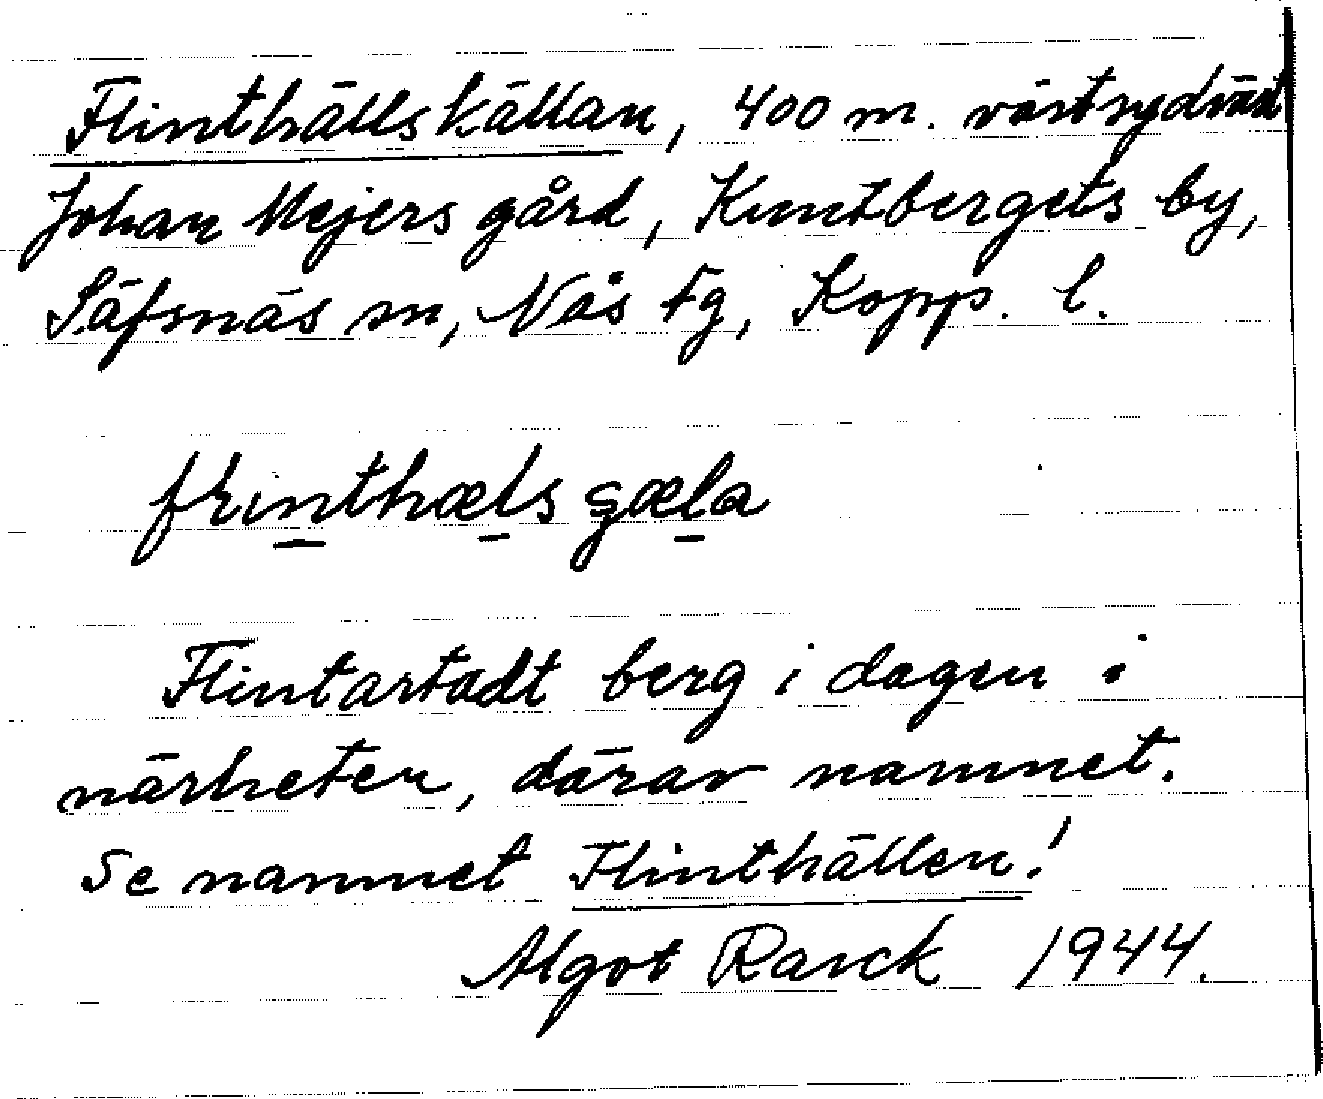 Flinthällskällan, 400 m. västsydväst
Johan Mejers gård, Kuntbergets by,
Säfsnäs sn, Nås Fg, Kopp. l.
flinthælsgæla
Flintartadt berg i dagen i
närheten, därav namnet.
Se namnet Flinthällen!
Algot Rarck 1944.